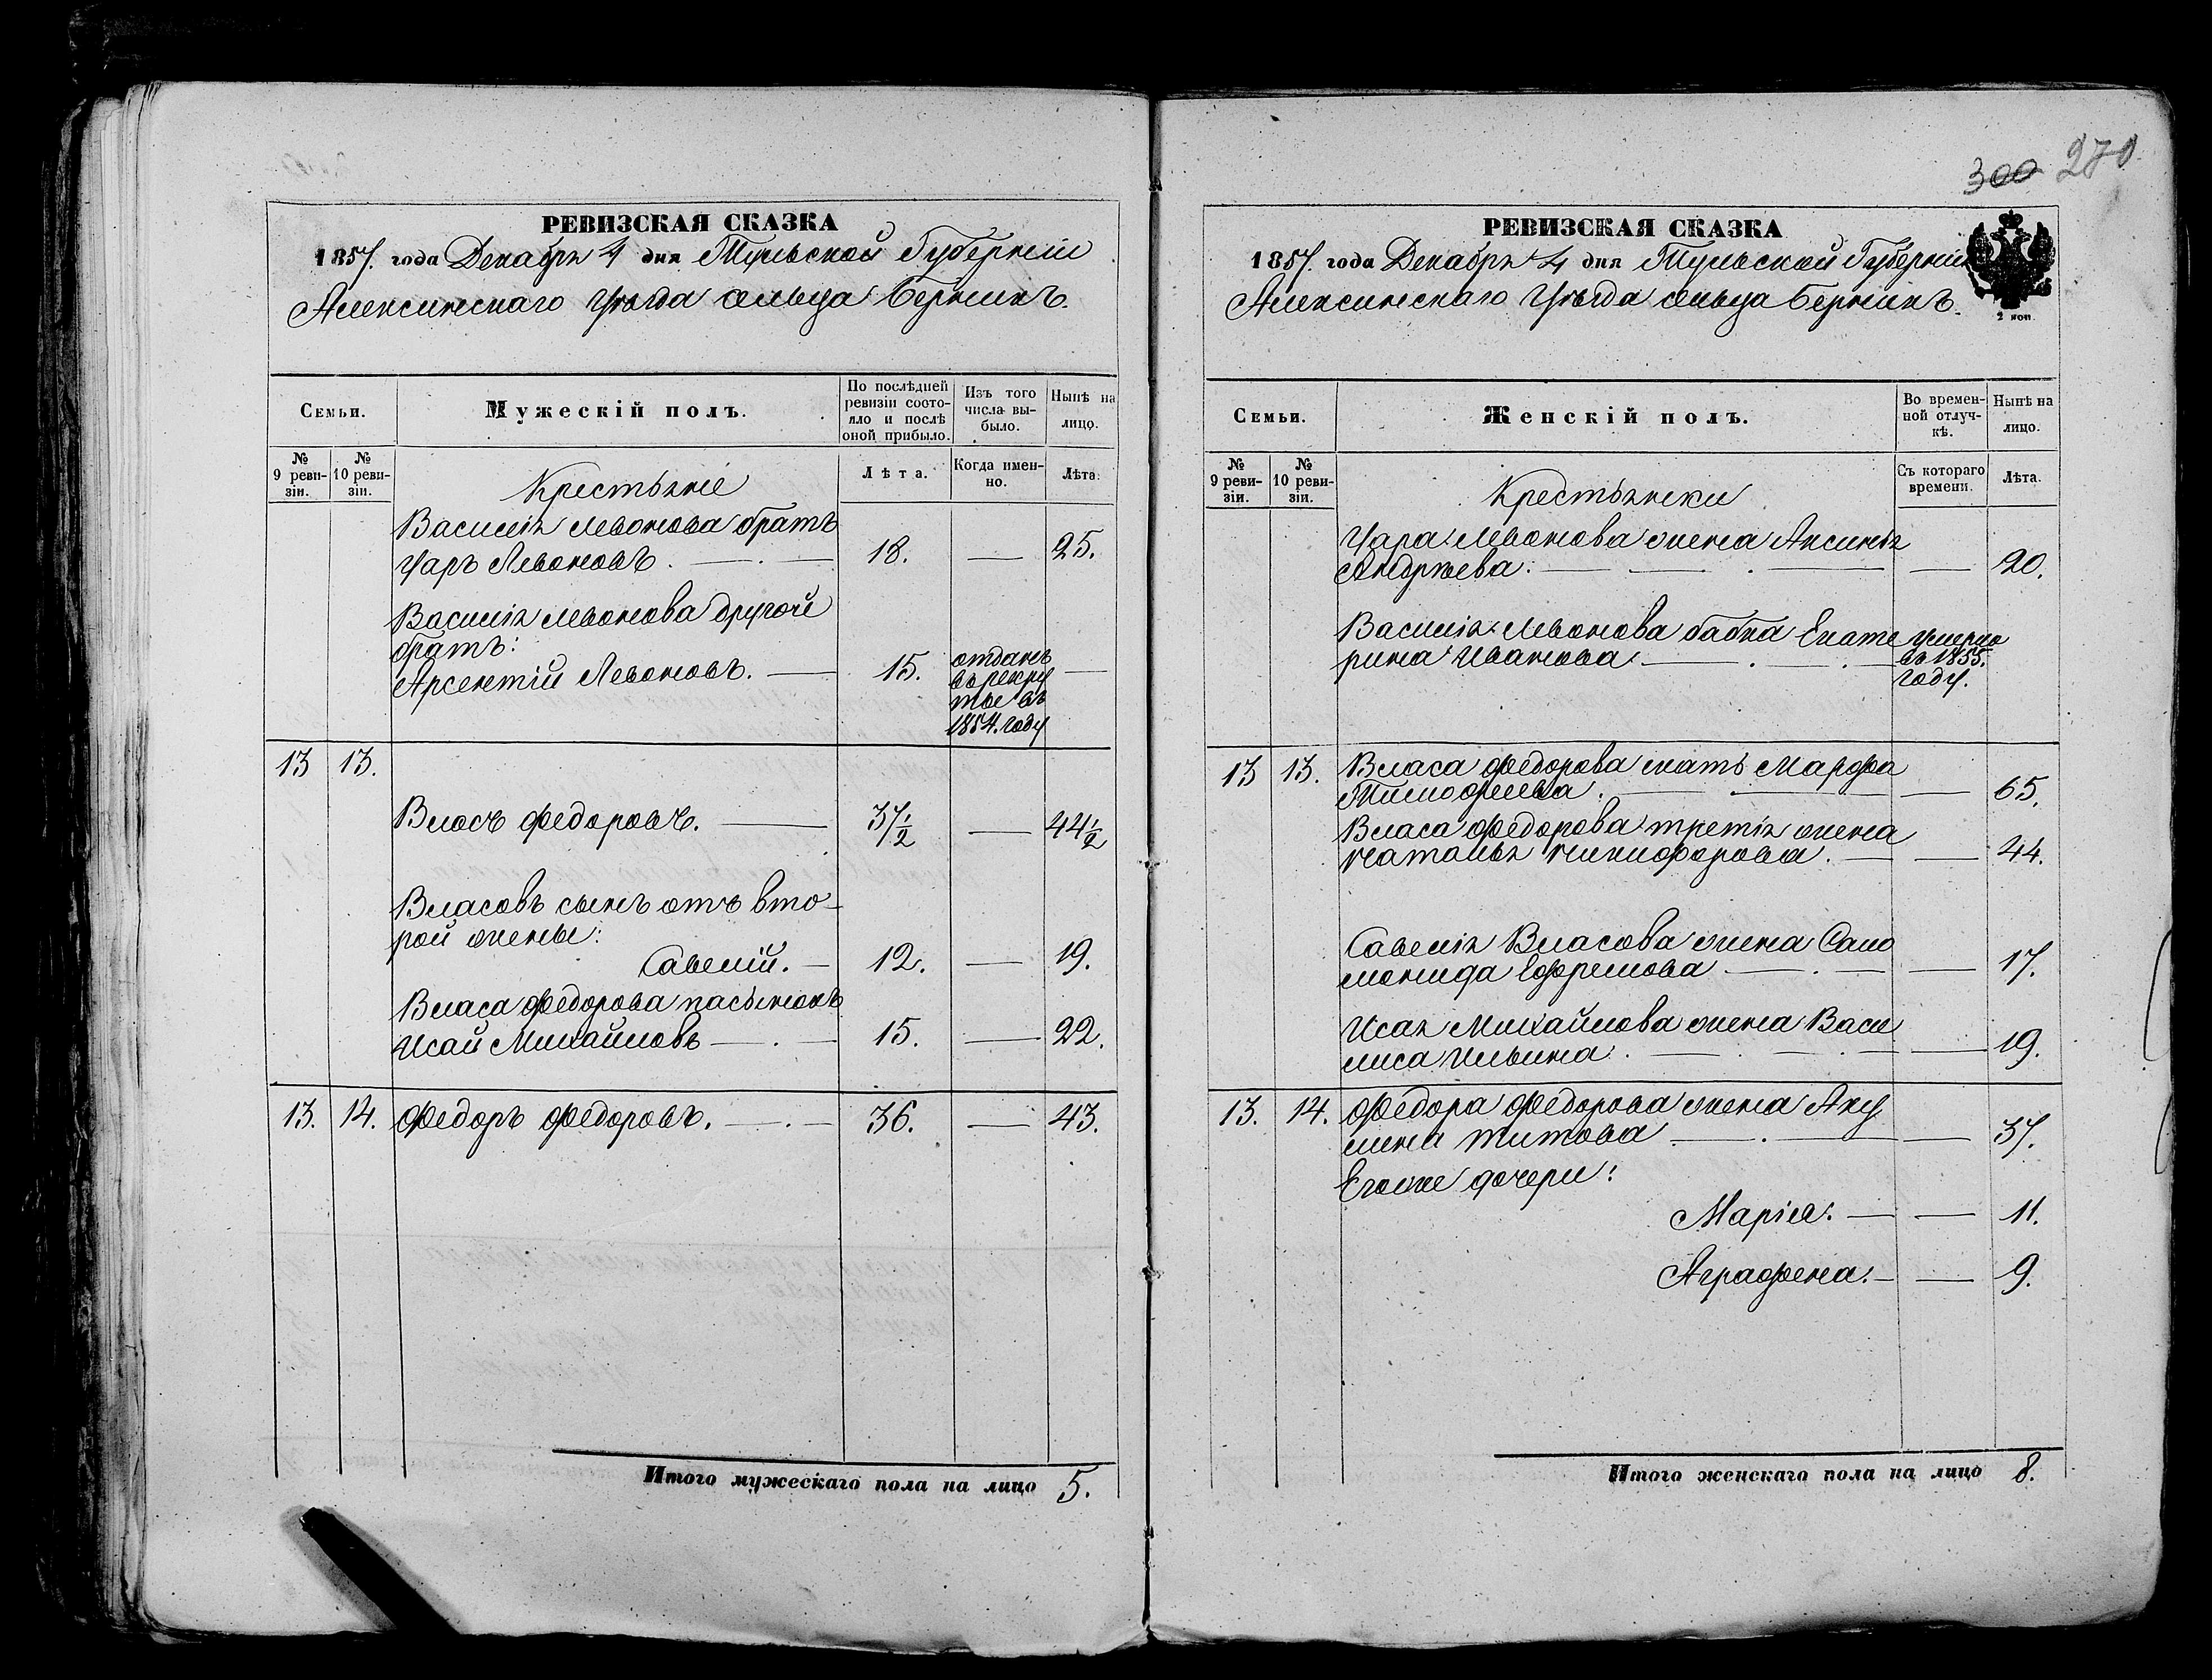 РЕВИЗСКАЯ СКАЗКА
1857. года Декабря 4 дня Тульской Губерніи
Алексинскаго Уѣзда сельца Берникъ.
Семьи.
Мужескій полъ.
По послѣдней ревизіи состо-
яло и послѣ оной прибыло.
Изъ того числа вы-
было.
Нынѣ на лицо.
№ 9 реви-
зіи.
№ 10 реви-
зіи.
Лѣта.
Когда имен-
но.
Лѣта.
Крестьяніе
Василія Левонова братъ
Уаръ Левоновъ. 18. — 25.
Василія Левонова другой
братъ:
Арсентій Левоновъ. — 15. отданъ
въ рекру
ты въ
1854. году —
13 13.
Власъ Федоровъ. — 37 1/2 — 44 1/2
Власовъ сынъ отъ вто-
рой жены:
Савелій. — 12. — 19.
Власа Федорова пасынокъ
Исай Михайловъ — 15. — 22.
13. 14. Федоръ Федоровъ. — 36. — 43.
Итого мужескаго пола на лицо 5.
300 270
РЕВИЗСКАЯ СКАЗКА
1857. года Декабря 4 дня Тульской Губерніи
Алексинскаго Уѣзда сельца Берникъ.
2 коп.
Семьи.
Женскій полъ.
Во времен-
ной отлуч-
кѣ.
Нынѣ на лицо.
№ 9 реви-
зіи.
№ 10 реви-
зіи.
Съ котораго времени.
Лѣта.
Крестьянки
Уара Левонова жена Аксинья
Андрѣева. — 20.
Василія Левонова бабка Екате
рина Иванова. — умерла
въ 1855.
году.
13 13. Власа Федорова мать Марфа
Тимофеева. — 65.
Власа Федорова третія жена
Наталья Никифорова. — 44.
Савелія Власова жена Соло
монида Ефремова — 17.
Исая Михайлова жена Васи
лиса Ильина. — 19.
13. 14. Федора Федорова жена Аку
лина Титова — 37.
Егоже дочери:
Марія. — 11.
Аграфена. — 9.
Итого женскаго пола на лицо 8.